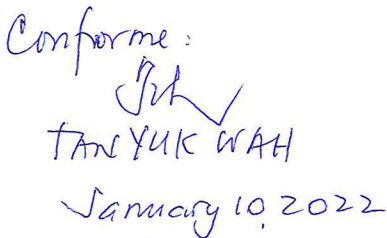 Conforme:
TAN YUK WAH
January 10, 2022